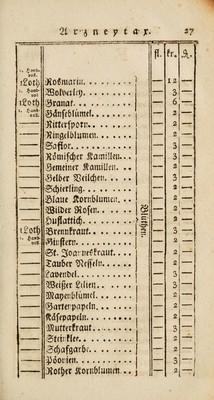 Arzneytax. 27
fl. kr. ₰.
Rosmarin. 12 —
Wolverley. 3 —
1 Loth Granat. 6 —
Gänseblümel. 2 —
Rittersporn. 2 —
Ringelblumen. 2 —
Saflor. 3 —
Römischer Kamillen. 3 —
Gemeiner Kamillen. 2 —
Gelber Veilchen. 3 —
Schierling. 2 —
Blaue Kornblumen. 2 —
Wilder Rosen. 2 —
Huflattich. 3 —
1 Loth Brennkraut. 3 —
Ginstern. 2 —
St. Joanneskraut. 2 —
Tauber Nesseln. 2 —
Lavendel. 3 —
Weißer Lilien. 3 —
Mayenblümel. 2 —
Gartenpapeln. 2 —
Käsepapeln. 2 —
Mutterkraut. 3 —
Steinklee. 2 —
Schafgarbe. 2 —
Päonien. 3 —
Rother Kornblumen 2 —
Blüthen.